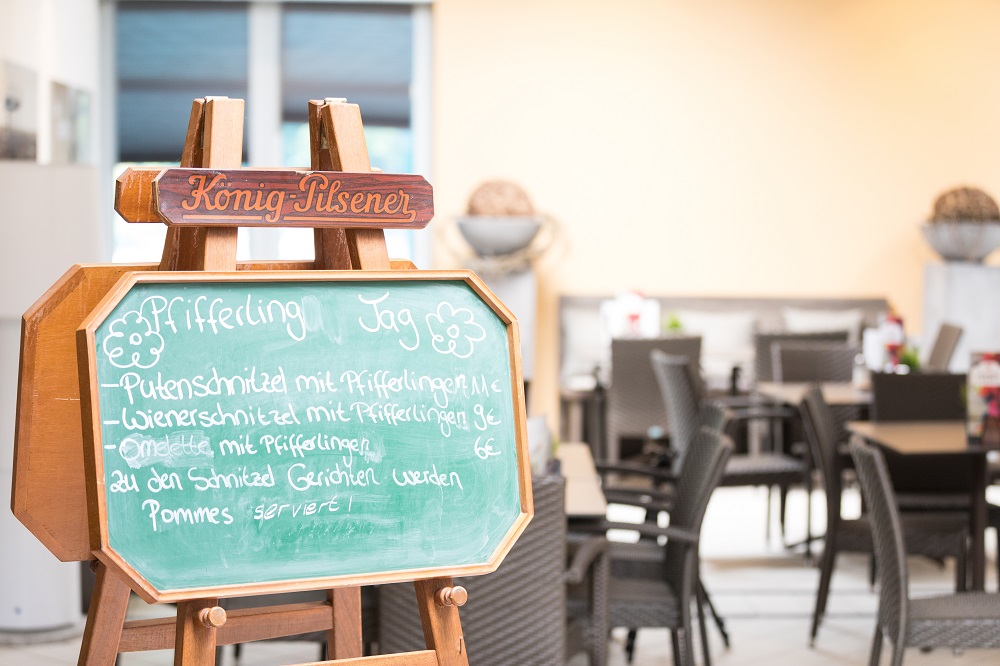 König-Pilsener
Pfifferling Tag
- Putenschnitzel mit Pfifferlingen 11€
- Wienerschnitzel mit Pfifferlingen 9€
- Omelette mit Pfifferlingen 6€
Zu den Schnitzel Gerichten werden
Pommes serviert!